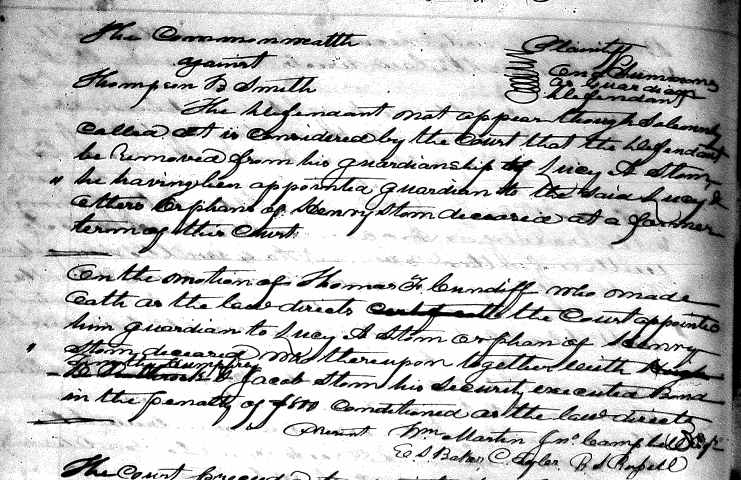 The Commonwealth Plaintiff
against On a Summons
Thompson B Smith as Guardian
Defendant
The Defendant not appear though Solemnly
Called it is Considered by the Court that the Defendant
be Removed from his guardianship to Lucy A Stom
he having been appointed guardian to the said Lucy &
others Orphans of Henry Stom deceased at a former
term of this Court
On the motion of Thomas F Cundiff who made
Oath as the law directs the Court appointed
him guardian to Lucy A Stom orphan of Henry
Stom deceased who thereupon together with
& Jacob Stom his Security executed Bond
in the penalty of $800 Conditioned as the law directs
Present Wm Martin Jno Campbell
E S Baker C Tyler R S
The Court